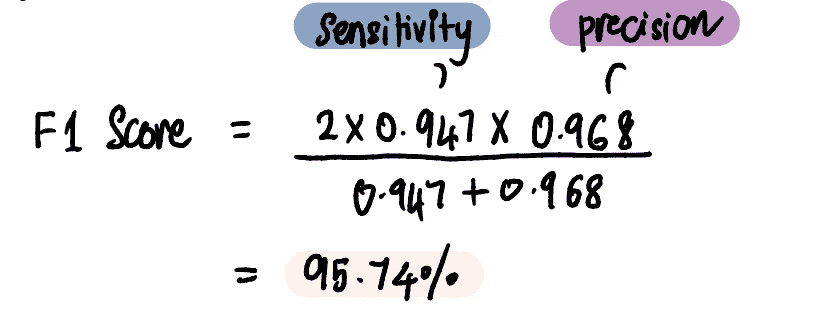 Sensitivity precision
F1 Score = 2 x 0.947 x 0.968
0.947 + 0.968
= 95.74%